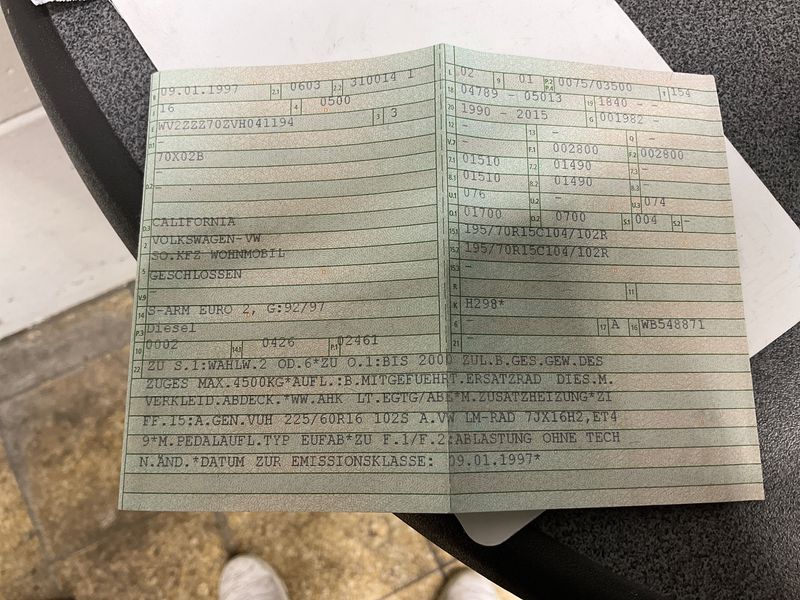 B 09.01.1997 2.1 0603 2.2 310014 1
J 16 4 0500
E WV2ZZZ70ZVH041194 3 3
D.1 -
70X02B
-
D.2 -
D.3 CALIFORNIA
2 VOLKSWAGEN-VW
5 SO.KFZ WOHNMOBIL
GESCHLOSSEN
V.9 -
14 S-ARM EURO 2, G:92/97
P.3 Diesel
10 0002 14.1 0426 P.1 02461
L 02 9 01 P.2 P.4 0075/03500 T 154
18 04789 - 05013 19 1840 - -
20 1990 - 2015 G 001982 -
12 - 13 - Q -
V.7 - F.1 002800 F.2 002800
7.1 01510 7.2 01490 7.3 -
8.1 01510 8.2 01490 8.3 -
U.1 076 U.2 - U.3 074
O.1 01700 O.2 0700 S.1 004 S.2 -
15.1 195/70R15C104/102R
15.2 195/70R15C104/102R
15.3 -
R 11
K H298*
6 - 17 A 16 WB548871
21 -
22 ZU S.1:WAHLW.2 OD.6*ZU O.1:BIS 2000 ZUL.B.GES.GEW.DES
ZUGES MAX.4500KG*AUFL.:B.MITGEFUEHRT.ERSATZRAD DIES.M.
VERKLEID.ABDECK.*WW.AHK LT.EGTG/ABE*M.ZUSATZHEIZUNG*ZI
FF.15:A.GEN.VUH 225/60R16 102S A.VW LM-RAD 7JX16H2,ET4
9*M.PEDALAUFL.TYP EUFAB*ZU F.1/F.2:ABLASTUNG OHNE TECH
N.ÄND.*DATUM ZUR EMISSIONSKLASSE: 09.01.1997*